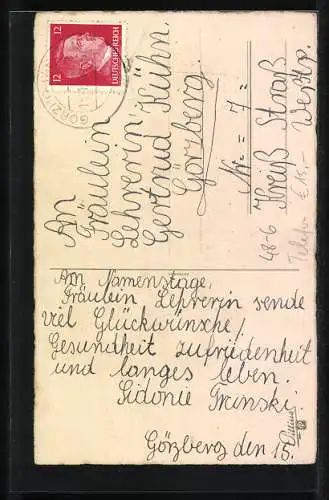 12 12
DEUTSCHES REICH
An
Fräulein
Lehrerin
Gertrud Kühn.
Görzberg.
Nr. = 7 =
Kreiß Straß
Westp.
48-6
Am Namenstage,
Fräulein Lehrerin sende
viel Glückwünsche!
Gesundheit zufriedenheit
und langes leben.
Sidonie Grinski.
Görzberg den 15.